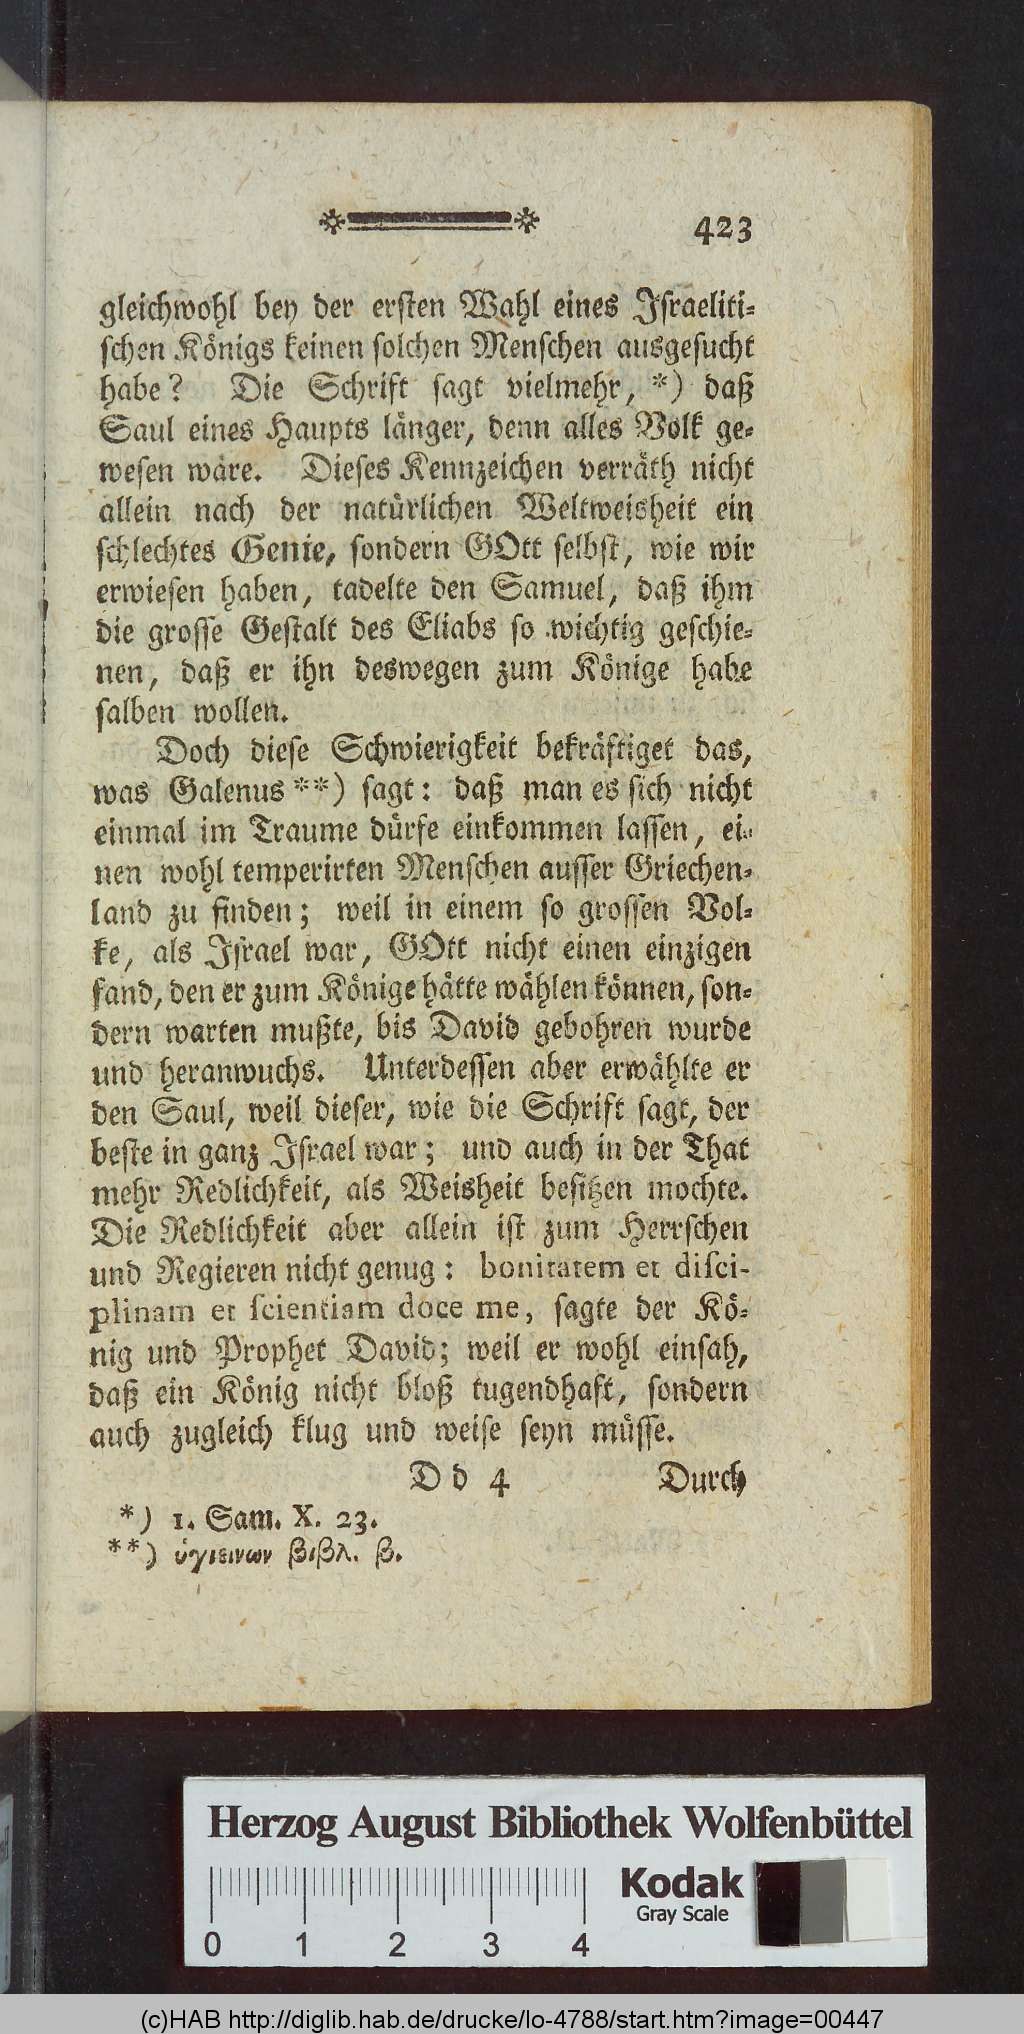 423
gleichwohl bey der ersten Wahl eines Israeliti-
schen Königs keinen solchen Menschen ausgesucht
habe? Die Schrift sagt vielmehr, *) daß
Saul eines Haupts länger, denn alles Volk ge-
wesen wäre. Dieses Kennzeichen verräth nicht
allein nach der natürlichen Weltweisheit ein
schlechtes Genie, sondern GOtt selbst, wie wir
erwiesen haben, tadelte den Samuel, daß ihm
die grosse Gestalt des Eliabs so wichtig geschie-
nen, daß er ihn deswegen zum Könige habe
salben wollen.
Doch diese Schwierigkeit bekräftiget das,
was Galenus **) sagt: daß man es sich nicht
einmal im Traume dürfe einkommen lassen, ei-
nen wohl temperirten Menschen ausser Griechen-
land zu finden; weil in einem so grossen Vol-
ke, als Israel war, GOtt nicht einen einzigen
fand, den er zum Könige hätte wählen können, son-
dern warten mußte, bis David gebohren wurde
und heranwuchs. Unterdessen aber erwählte er
den Saul, weil dieser, wie die Schrift sagt, der
beste in ganz Israel war; und auch in der That
mehr Redlichkeit, als Weisheit besitzen mochte.
Die Redlichkeit aber allein ist zum Herrschen
und Regieren nicht genug: bonitatem et disci-
plinam et scientiam doce me, sagte der Kö-
nig und Prophet David; weil er wohl einsah,
daß ein König nicht bloß tugendhaft, sondern
auch zugleich klug und weise seyn müsse.
D d 4 Durch
*) 1. Sam. X. 23.
**) ὑγιεινων βιβλ. β.
Herzog August Bibliothek Wolfenbüttel
Kodak
Gray Scale
0 1 2 3 4
(c)HAB http://diglib.hab.de/drucke/lo-4788/start.htm?image=00447